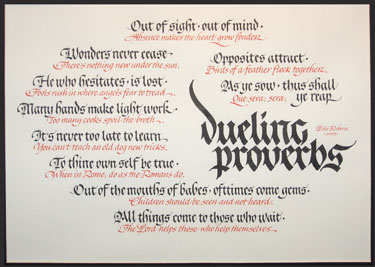 Out of sight · out of mind ·
Absence makes the heart grow fonder.
Wonders never cease ·
There's nothing new under the sun.
Opposites attract ·
Birds of a feather flock together.
He who hesitates · is lost ·
Fools rush in where angels fear to tread.
As ye sow · thus shall
ye reap
Que sera, sera.
Many hands make light work ·
Too many cooks spoil the broth.
It's never too late to learn ·
You can't teach an old dog new tricks.
dueling
proverbs
To thine own self be true ·
When in Rome, do as the Romans do.
Out of the mouths of babes · ofttimes come gems ·
Children should be seen and not heard.
All things come to those who wait ·
The Lord helps those who help themselves.